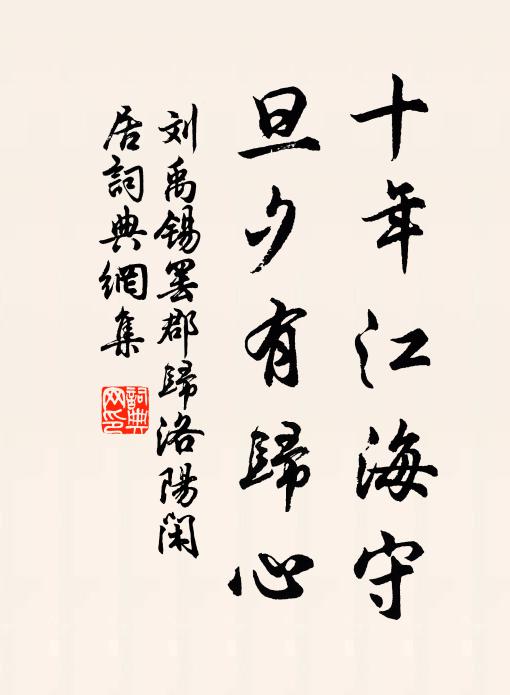 十年江海守
旦夕有歸心
刘禹锡罢郡歸洛陽闲
居詞典網集
詞典
网印